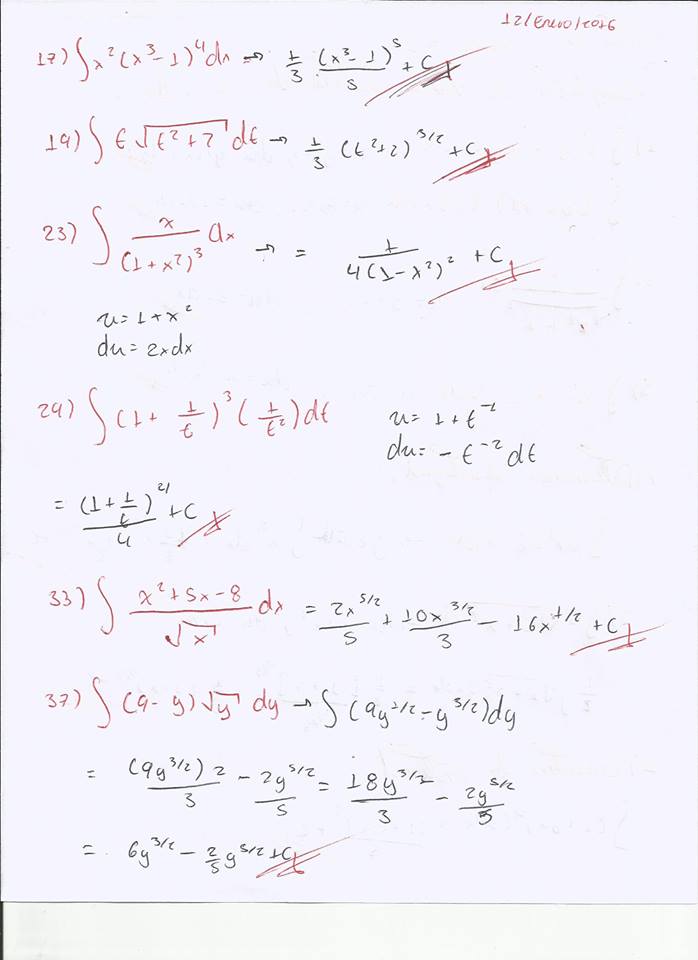 12/Enero/2016
17) ∫ x² (x³ - 1)⁴ dx → 1/3 (x³ - 1)⁵/5 + C
19) ∫ t √(t² + 2) dt → 1/3 (t² + 2)^(3/2) + C
23) ∫ x/(1 + x²)³ dx → = 1/(4(1 - x²)²) + C
u = 1 + x²
du = 2x dx
29) ∫ (1 + 1/t)³ (1/t²) dt
u = 1 + t⁻¹
du = - t⁻² dt
= (1 + 1/t)⁴/4 + C
33) ∫ (x² + 5x - 8)/√x dx = 2x^(5/2)/5 + 10x^(3/2)/3 - 16x^(1/2) + C
37) ∫ (9 - y) √y dy → ∫ (9y^(1/2) - y^(3/2)) dy
= (9y^(3/2)) 2/3 - 2y^(5/2)/5 = 18y^(3/2)/3 - 2y^(5/2)/5
= 6y^(3/2) - 2/5 y^(5/2) + C